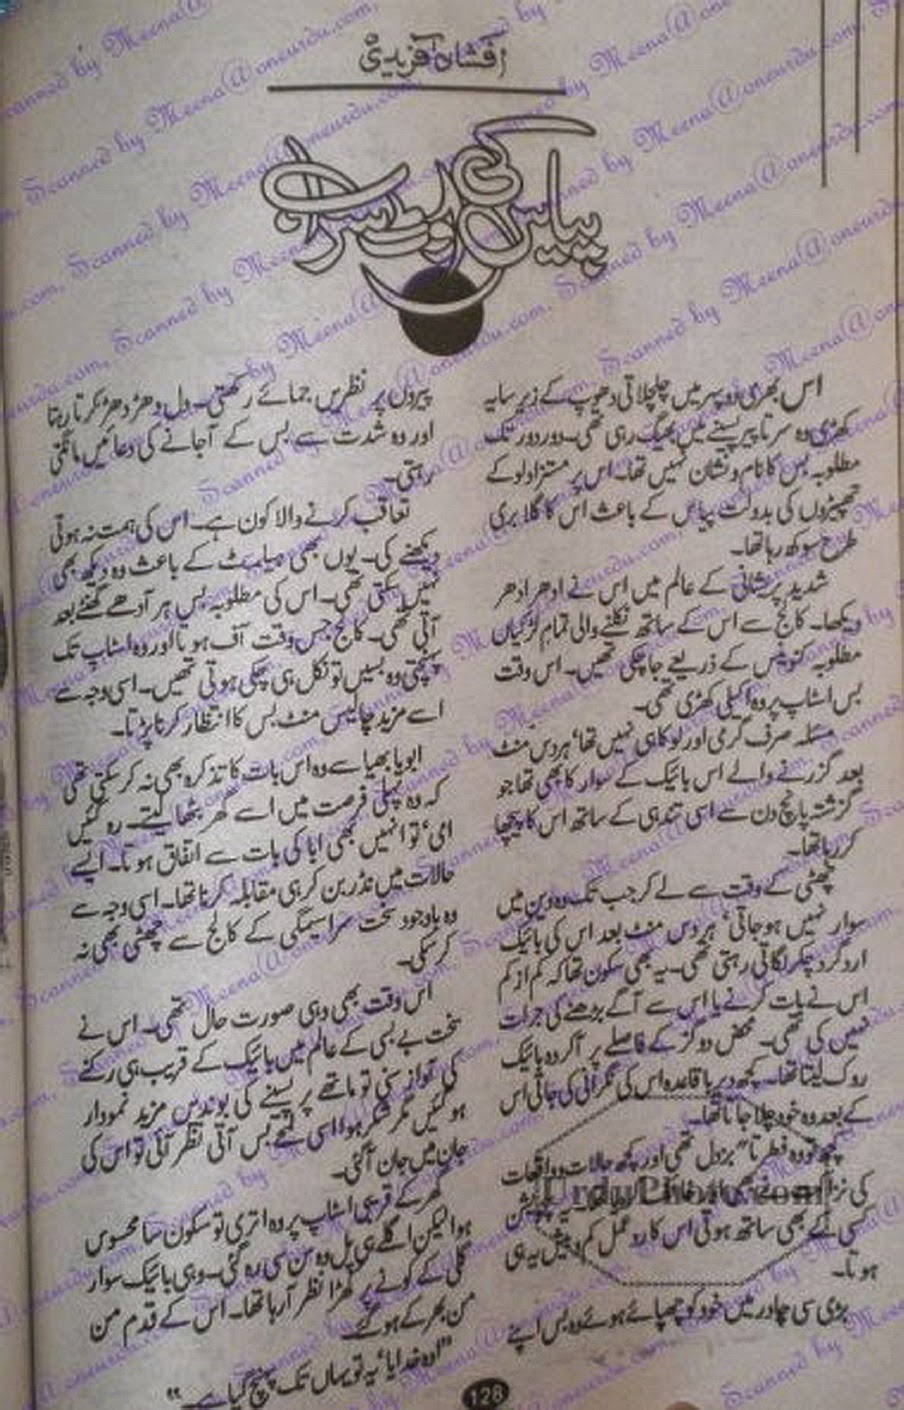 افشاں آفریدی
پیاس کی ریت سراب
اس بھری دوپہر میں چلچلاتی دھوپ کے زیر سایہ
کھڑی وہ سر تا پیر پسینے میں بھیگ رہی تھی۔ دور دور تک
مطلوبہ بس کا نام و نشان نہیں تھا۔ اس پر مستزاد لو کے
تھپیڑوں کی بدولت پیاس کے باعث اس کا گلا بری
طرح سوکھ رہا تھا۔
شدید پریشانی کے عالم میں اس نے ادھر ادھر
دیکھا۔ کالج سے اس کے ساتھ نکلنے والی تمام لڑکیاں
مطلوبہ کنوینس کے ذریعے جا چکی تھیں۔ اس وقت
بس اسٹاپ پر وہ اکیلی کھڑی تھی۔
مسئلہ صرف گرمی اور لو کا ہی نہیں تھا' ہر دس منٹ
بعد گزرنے والے اس بائیک کے سوار کا بھی تھا جو
گزشتہ پانچ دن سے اسی تندہی کے ساتھ اس کا پیچھا
کر رہا تھا۔
چھٹی کے وقت سے لے کر جب تک وہ وین میں
سوار نہیں ہو جاتی' ہر دس منٹ بعد اس کی بائیک
ارد گرد چکر لگاتی رہتی تھی۔ یہ بھی سکون تھا کہ کم از کم
اس نے بات کرنے یا اس سے آگے بڑھنے کی جرات
نہیں کی تھی۔ محض دو گز کے فاصلے پر آ کر وہ بائیک
روک لیتا تھا۔ کچھ دیر باقاعدہ اس کی نگرانی کی جاتی اس
کے بعد وہ خود چلا جاتا تھا۔
کچھ تو وہ فطرتا" بزدل تھی اور کچھ حالات و واقعات
کی
کسی کے بھی ساتھ ہوتی اس کا رد عمل کم و بیش یہ ہی
ہوتا۔
بڑی سی چادر میں خود کو چھپائے ہوئے وہ بس اپنے
پیروں پر نظریں جمائے رکھتی۔ دل دھڑ دھڑ کرتا رہتا
اور وہ شدت سے بس کے آ جانے کی دعائیں مانگتی
رہتی۔
تعاقب کرنے والا کون ہے۔ اس کی ہمت نہ ہوتی
دیکھنے کی۔ یوں بھی ہیلمٹ کے باعث وہ دیکھ بھی
نہیں سکتی تھی۔ اس کی مطلوبہ بس ہر آدھے گھنٹے بعد
آتی تھی۔ کالج جس وقت آف ہوتا اور وہ اسٹاپ تک
پہنچتی وہ بسیں تو نکل ہی چکی ہوتی تھیں۔ اسی وجہ سے
اسے مزید چالیس منٹ بس کا انتظار کرنا پڑتا۔
ابو یا بھیا سے وہ اس بات کا تذکرہ بھی نہ کر سکتی تھی
کہ وہ پہلی فرصت میں اسے گھر بٹھا لیتے۔ رہ گئیں
امی' تو انہیں بھی ابا کی بات سے اتفاق ہوتا۔ ایسے
حالات میں نڈر بن کر ہی مقابلہ کرنا تھا۔ اسی وجہ سے
وہ باوجود سخت سراسیمگی کے کالج سے چھٹی بھی نہ
کر سکی۔
اس وقت بھی وہی صورت حال تھی۔ اس نے
سخت بے بسی کے عالم میں بائیک کے قریب ہی رکنے
کی آواز سنی تو ماتھے پر پسینے کی بوندیں مزید نمودار
ہو گئیں مگر شکر ہوا اسی لمحے بس آتی نظر آئی تو اس کی
جان میں جان آ گئی۔
گھر کے قریبی اسٹاپ پر وہ اتری تو سکون سا محسوس
ہوا لیکن اگلے ہی پل وہ سن سی رہ گئی۔ وہی بائیک سوار
گلی کے کونے پر کھڑا نظر آ رہا تھا۔ اس کے قدم من
من بھر کے ہو گئے۔
"اوہ خدایا' یہ تو یہاں تک پہنچ گیا ہے۔"
128
UrduPhoto.com
Scanned by Meena@oneurdu.com,